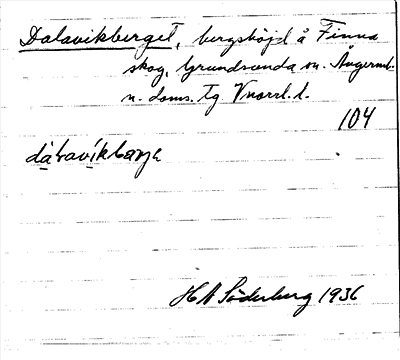 Dalavikberget, bergshöjd å Finna
skog, Grundsunda sn. Ångerml.
n. doms. tg Vnorrl. l.
104
dàlavíkbærje
H A Söderberg 1936